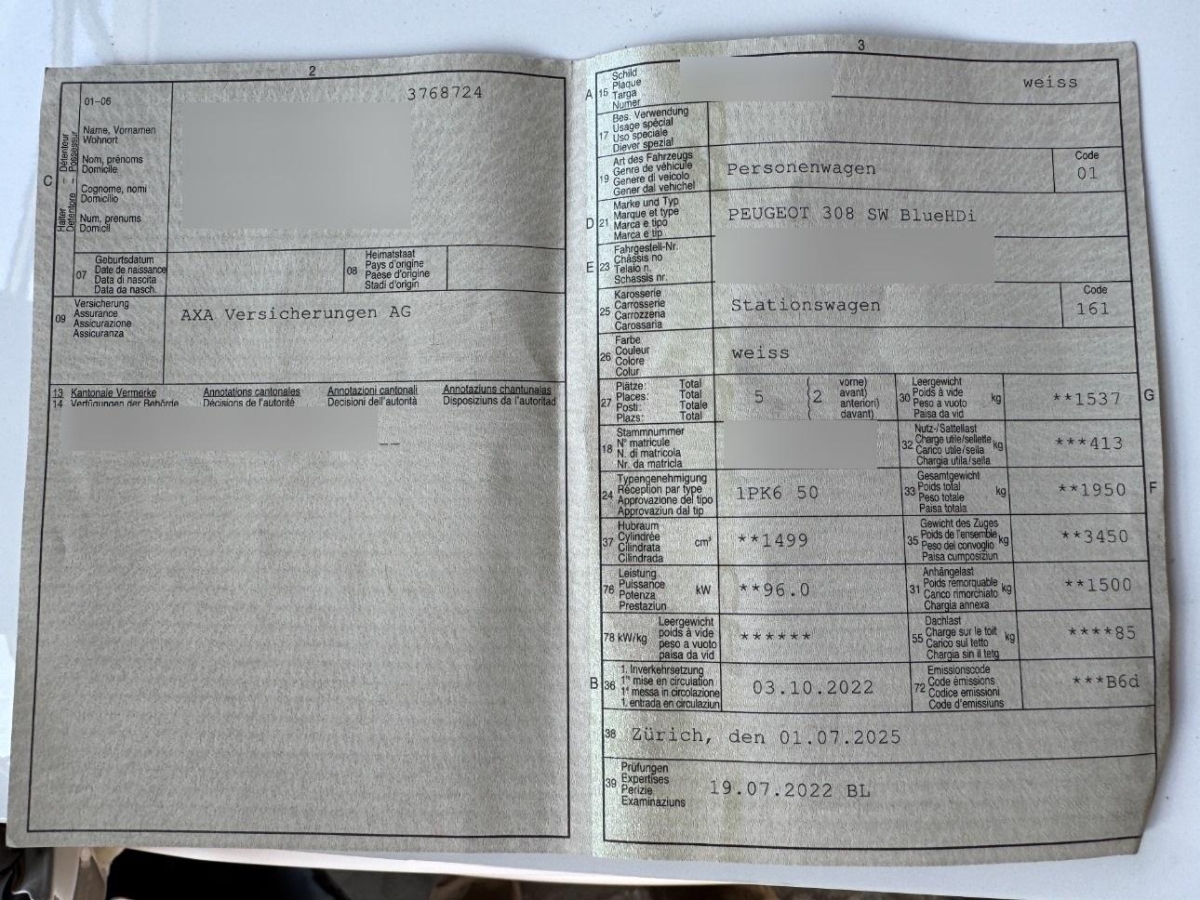 2
01-06
3768724
C
Halter – Détenteur
Detentore – Possessur
Name, Vornamen
Wohnort
Nom, prénoms
Domicile
Cognome, nomi
Domicilio
Num, prenums
Domicil
07
Geburtsdatum
Date de naissance
Data di nascita
Data da nasch.
08
Heimatstaat
Pays d'origine
Paese d'origine
Stadi d'origin
09
Versicherung
Assurance
Assicurazione
Assicuranza
AXA Versicherungen AG
13 Kantonale Vermerke Annotations cantonales Annotazioni cantonali Annotaziuns chantunalas
14 Verfügungen der Behörde Décisions de l'autorité Decisioni dell'autorità Disposiziuns da l'autoritad
3
A 15
Schild
Plaque
Targa
Numer
weiss
17
Bes. Verwendung
Usage spécial
Uso speciale
Diever spezial
19
Art des Fahrzeugs
Genre de véhicule
Genere di veicolo
Gener dal vehichel
Personenwagen
Code
01
D 21
Marke und Typ
Marque et type
Marca e tipo
Marca e tip
PEUGEOT 308 SW BlueHDi
E 23
Fahrgestell-Nr.
Châssis no
Telaio n.
Schassis nr.
25
Karosserie
Carrosserie
Carrozzeria
Carossaria
Stationswagen
Code
161
26
Farbe
Couleur
Colore
Colur
weiss
27
Plätze: Total
Places: Total
Posti: Totale
Plazs: Total
5 (2
vorne)
avant)
anteriori)
davant)
30
Leergewicht
Poids à vide
Peso a vuoto
Paisa da vid
kg
**1537
G
18
Stammnummer
N° matricule
N. di matricola
Nr. da matricla
32
Nutz-/Sattellast
Charge utile/sellette
Carico utile/sella
Chargia utila/sella
kg
***413
24
Typengenehmigung
Réception par type
Approvazione del tipo
Approvaziun dal tip
1PK6 50
33
Gesamtgewicht
Poids total
Peso totale
Paisa totala
kg
**1950
F
37
Hubraum
Cylindrée
Cilindrata
Cilindrada
cm³
**1499
35
Gewicht des Zuges
Poids de l'ensemble
Peso del convoglio
Paisa cumposiziun
kg
**3450
76
Leistung
Puissance
Potenza
Prestaziun
kW
**96.0
31
Anhängelast
Poids remorquable
Carico rimorchiato
Chargia annexa
kg
**1500
78 kW/kg
Leergewicht
poids à vide
peso a vuoto
paisa da vid
******
55
Dachlast
Charge sur le toit
Carico sul tetto
Chargia sin il tetg
kg
****85
B 36
1. Inverkehrsetzung
1re mise en circulation
1a messa in circolazione
1. entrada en circulaziun
03.10.2022
72
Emissionscode
Code émissions
Codice emissioni
Code d'emissiuns
***B6d
38 Zürich, den 01.07.2025
39
Prüfungen
Expertises
Perizie
Examinaziuns
19.07.2022 BL